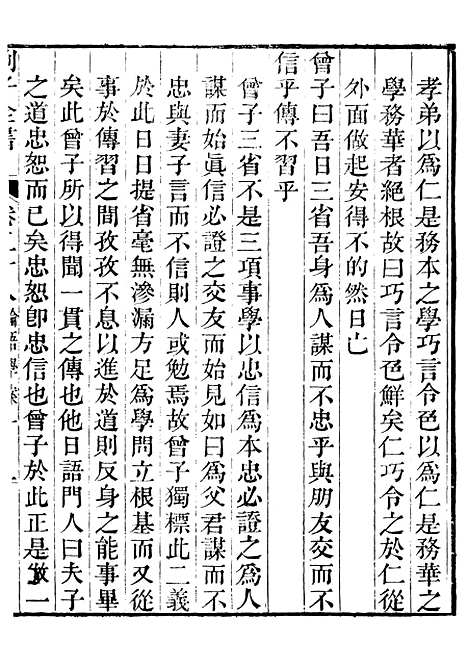 孝弟以爲仁是務本之學巧言令色以爲仁是務華之
學務華者絕根故曰巧言令色鮮矣仁巧令之於仁從
外面做起安得不的然日亡
曾子曰吾日三省吾身爲人謀而不忠乎與朋友交而不
信乎傳不習乎
曾子三省不是三項事學以忠信爲本忠必證之爲人
謀而始眞信必證之交友而始見如曰爲父君謀而不
忠與妻子言而不信則人或勉焉故曾子獨標此二義
於此日日提省毫無滲漏方足爲學問立根基而又從
事於傳習之間孜孜不息以進於道則反身之能事畢
矣此曾子所以得聞一貫之傳也他日語門人曰夫子
之道忠恕而已矣忠恕卽忠信也曾子於此正是做一
劉子全書 卷二十八 論語學案一